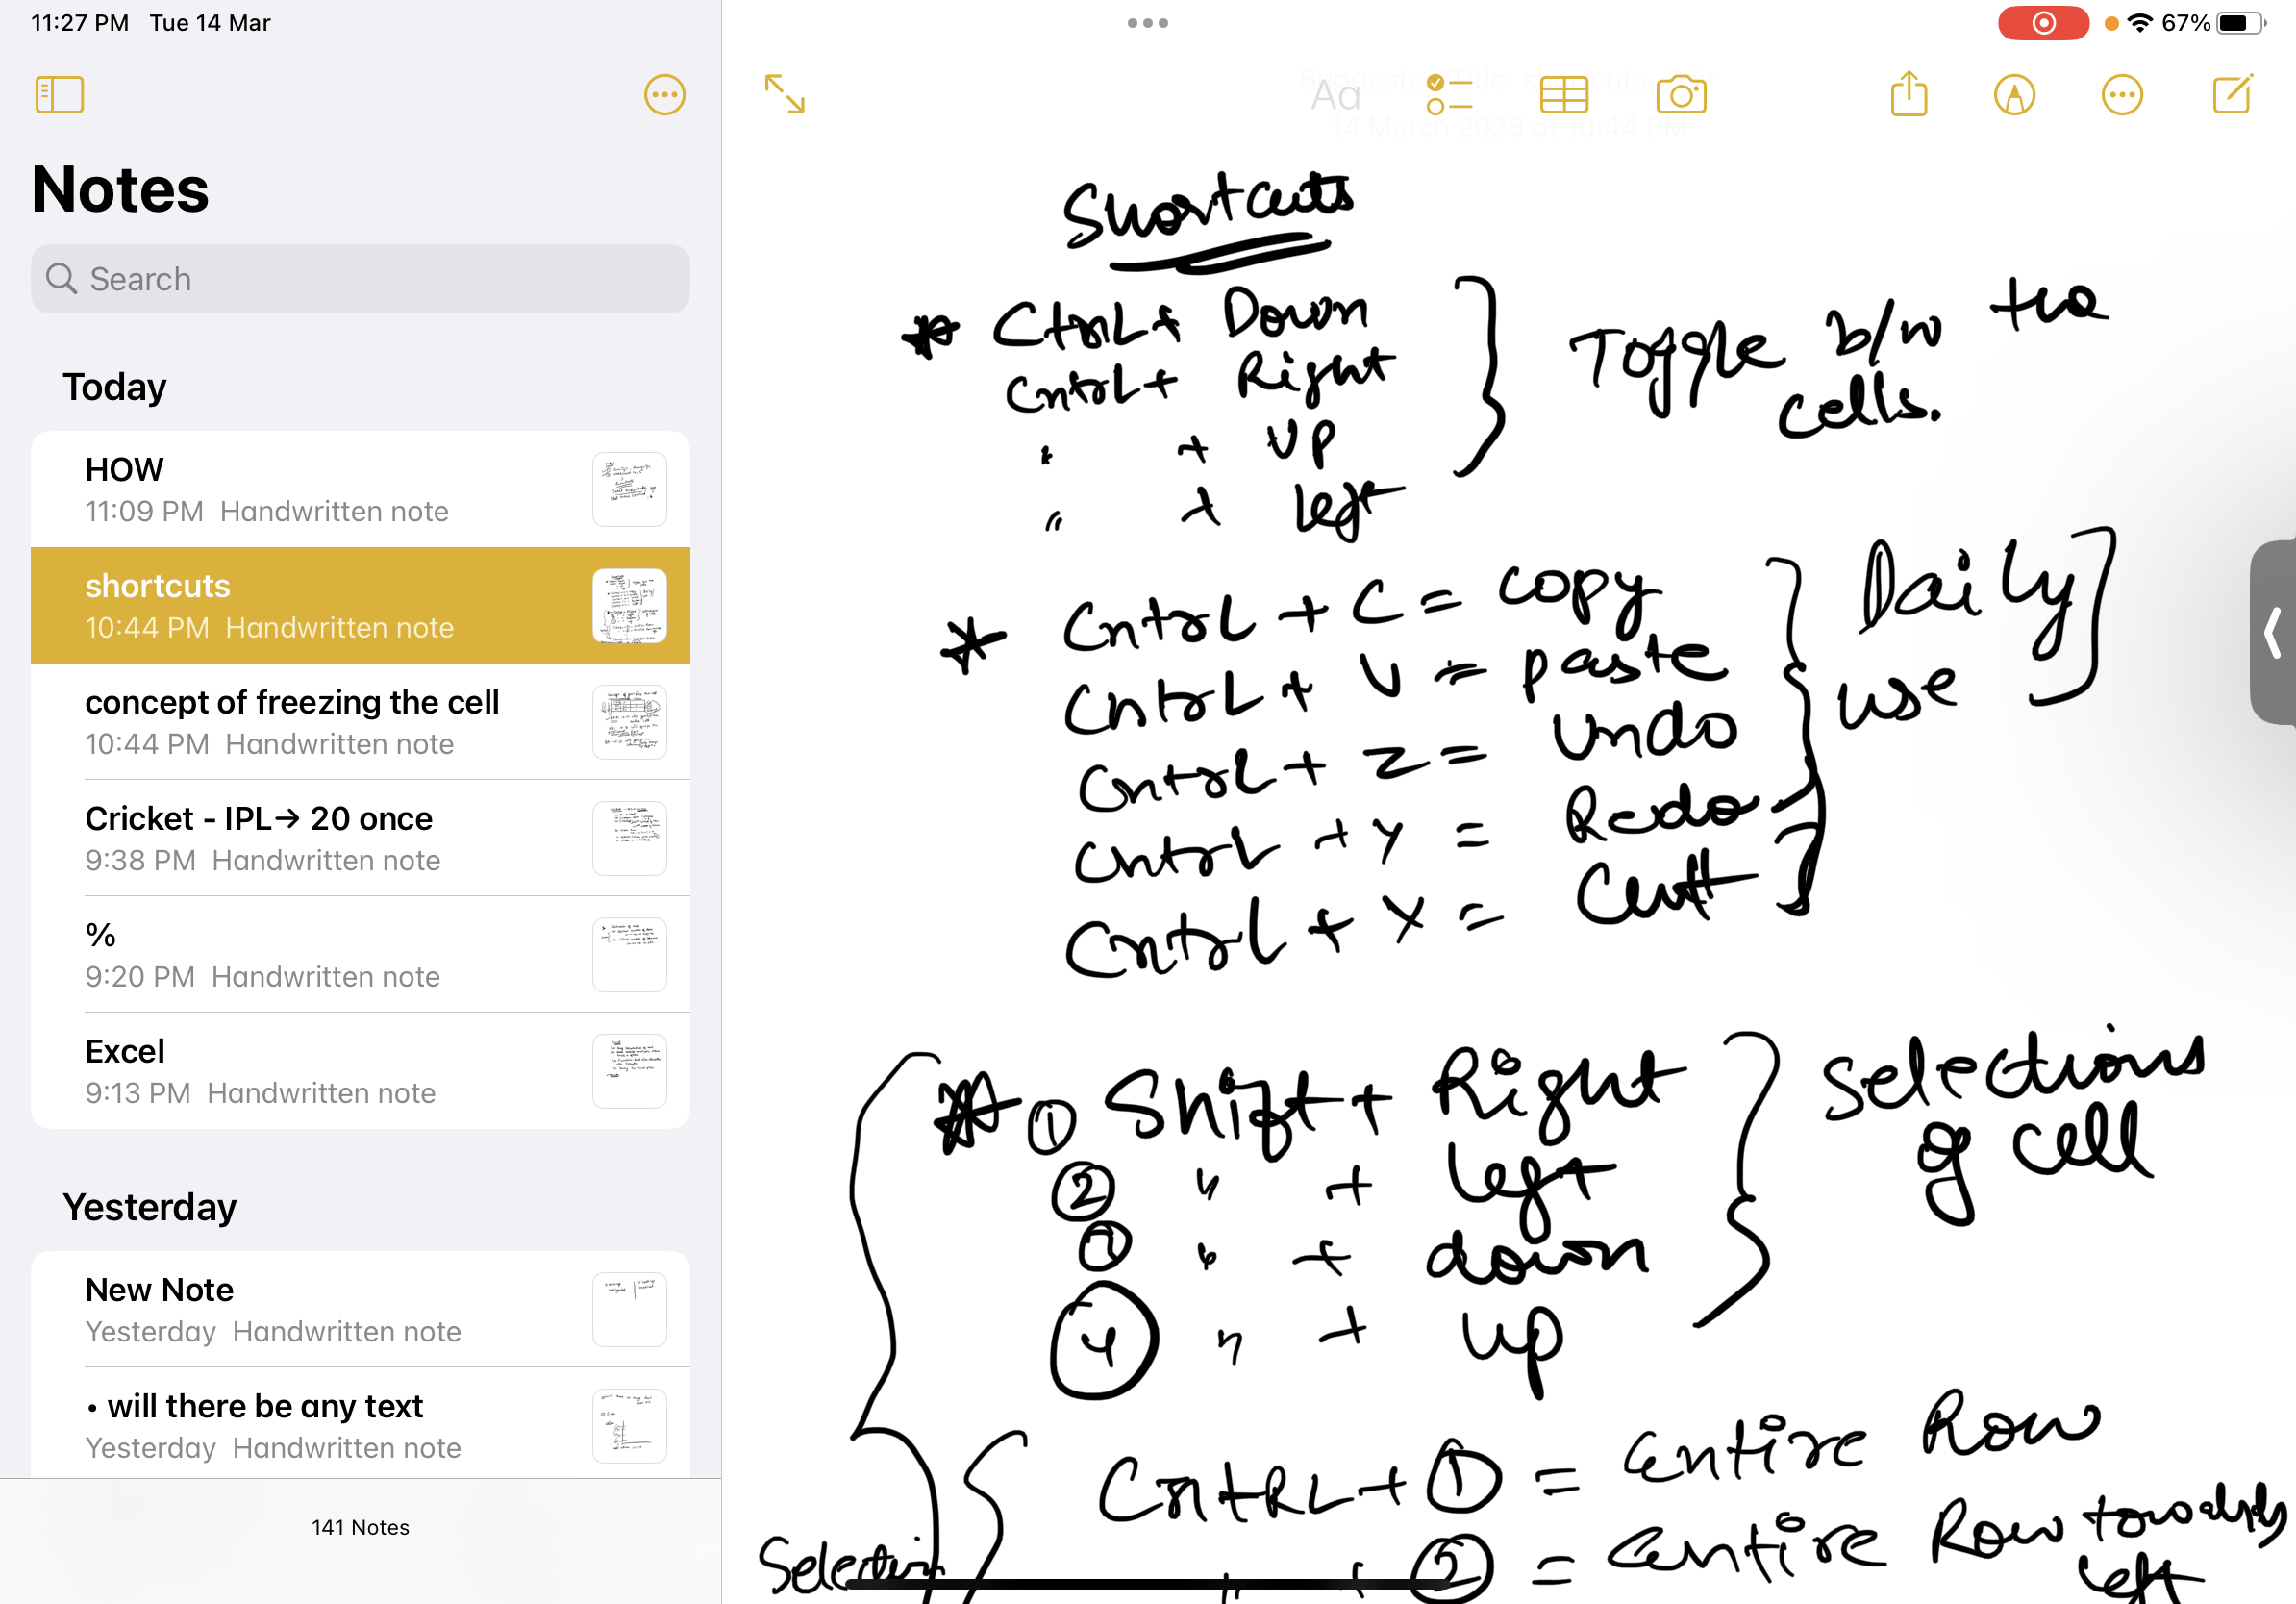 11:27 PM Tue 14 Mar
67%
Notes
Search
Today
HOW
11:09 PM Handwritten note
shortcuts
10:44 PM Handwritten note
concept of freezing the cell
10:44 PM Handwritten note
Cricket - IPL→ 20 once
9:38 PM Handwritten note
%
9:20 PM Handwritten note
Excel
9:13 PM Handwritten note
Yesterday
New Note
Yesterday Handwritten note
• will there be any text
Yesterday Handwritten note
141 Notes
Aa
Suggested Title: shortcuts
14 March 2023 at 10:44 PM
Shortcuts
* CtrL+ Down
CntrL+ Right
" + UP
" + left
} Toggle b/w the
cells.
* CntrL + C = copy
CntrL + V = paste
CntrL + Z = Undo
CntrL + Y = Redo
CntrL + X = Cutt
} Daily]
use
* ① Shift + Right
② " + left
" + down
④ " + up
} selections
of cell
CntRL + ① = entire Row
" + ② = entire Row towards
left
Selection